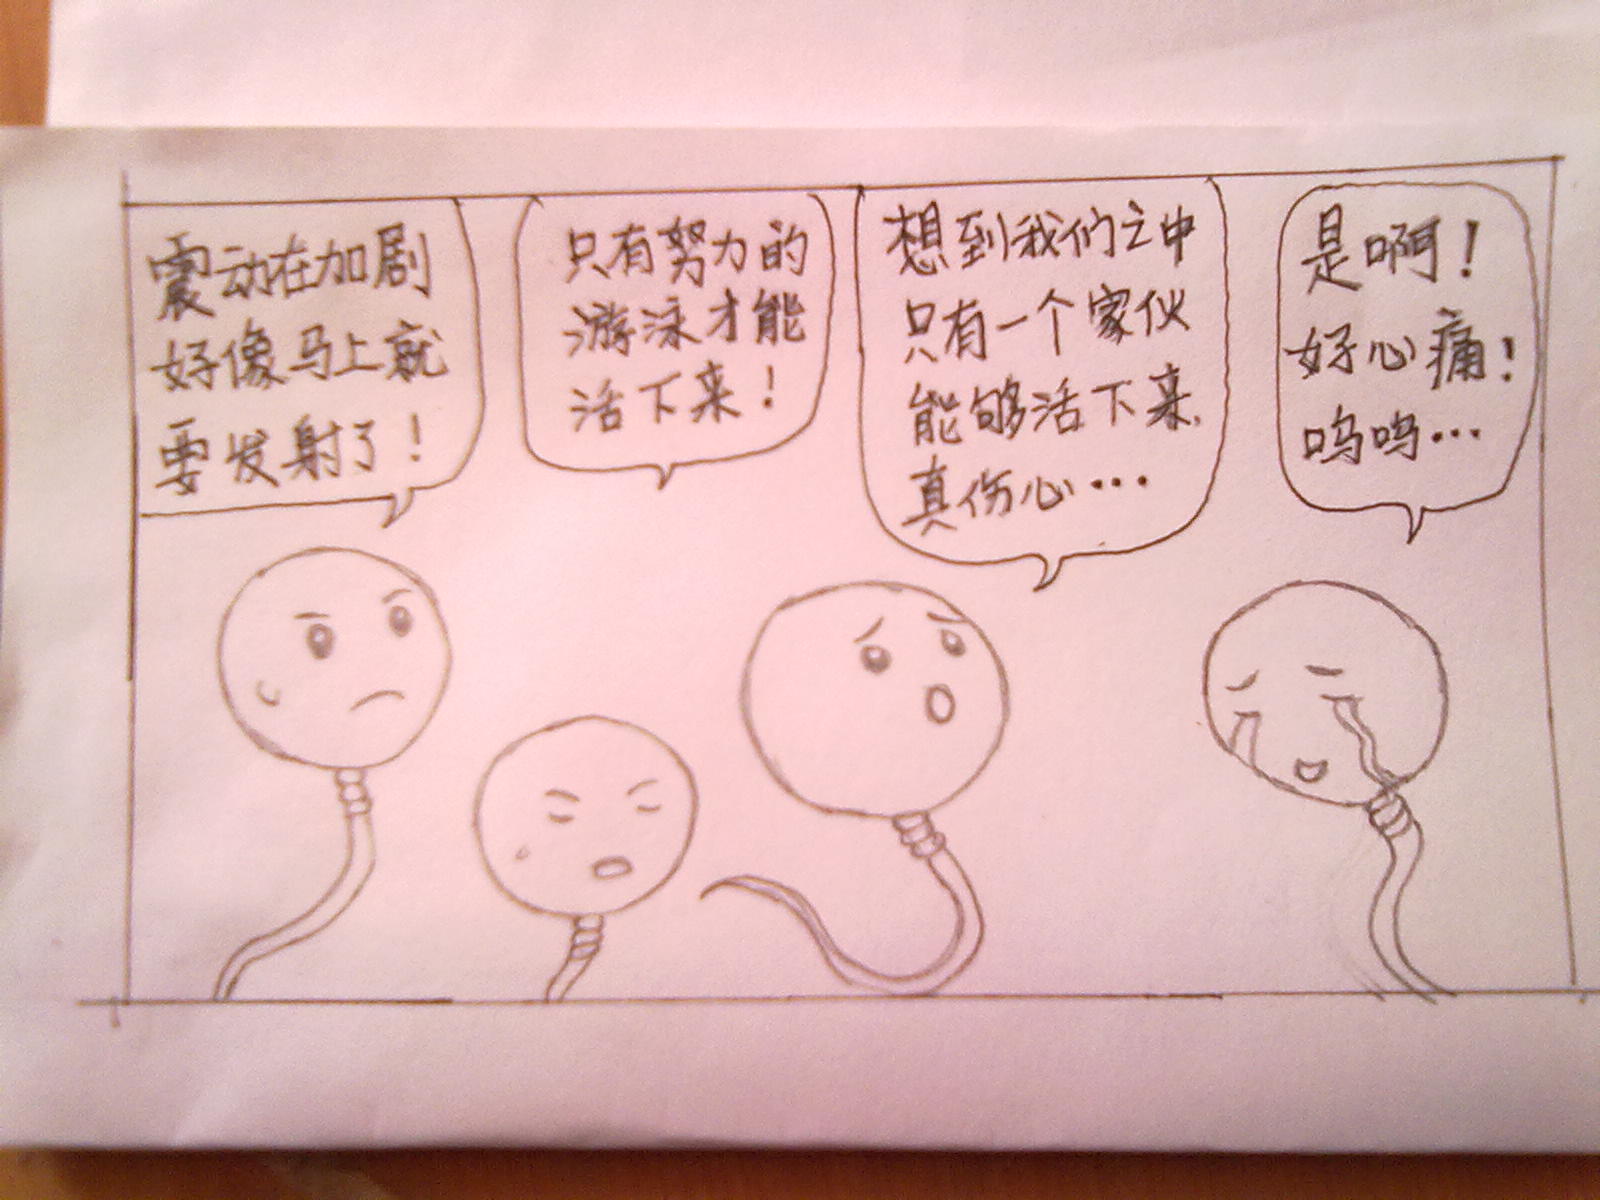 震动在加剧
好像马上就
要发射了！
只有努力的
游泳才能
活下来！
想到我们之中
只有一个家伙
能够活下来,
真伤心…
是啊！
好心痛！
呜呜…